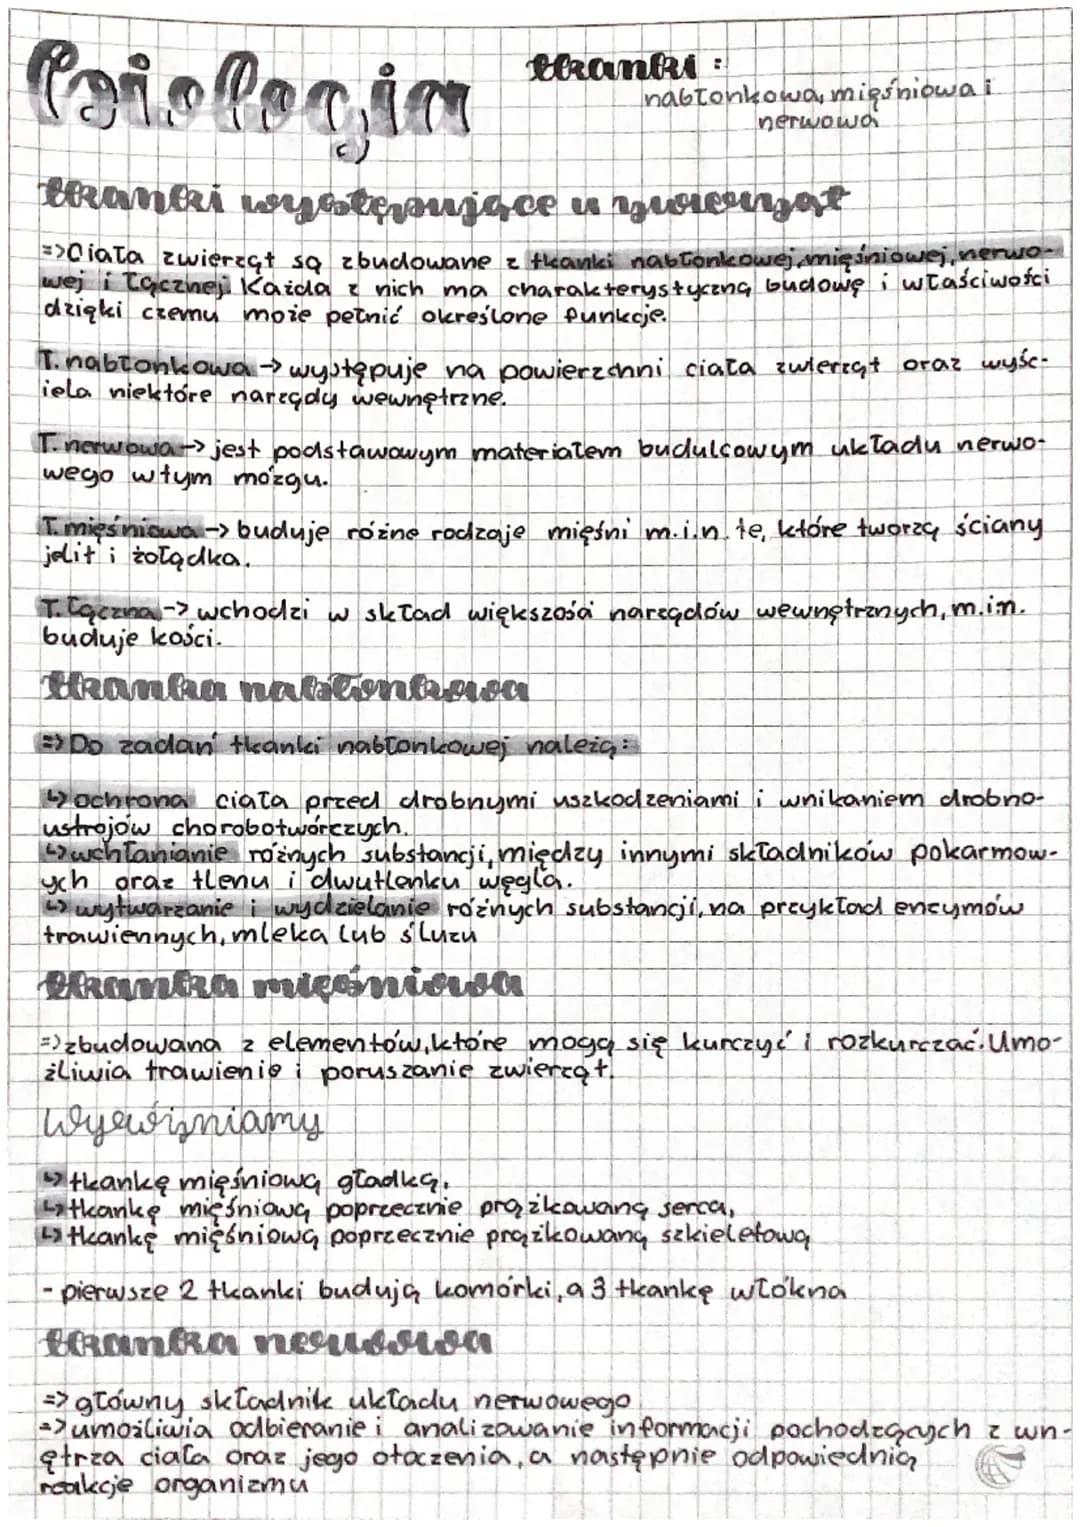 Biologia
tkanki :
nabłonkowa, mięśniowa i
nerwowa
tkanki występujące u zwierząt
=> Ciała zwierząt są zbudowane z tkanki nabłonkowej, mięśniowej, nerwo-
wej i łącznej. Każda z nich ma charakterystyczną budowę i właściwości
dzięki czemu może pełnić określone funkcje.
T. nabłonkowa -> występuje na powierzchni ciała zwierząt oraz wyśc-
iela niektóre narządy wewnętrzne.
T. nerwowa -> jest podstawowym materiałem budulcowym układu nerwo-
wego w tym mózgu.
T. mięśniowa -> buduje różne rodzaje mięśni m.i.n. te, które tworzą ściany
jelit i żołądka.
T. łączna -> wchodzi w skład większośći narządów wewnętrznych, m.in.
buduje kości.
tkanka nabłonkowa
=> Do zadań tkanki nabłonkowej należą:
↳ ochrona ciała przed drobnymi uszkodzeniami i wnikaniem drobno-
ustrojów chorobotwórczych.
↳ wchłanianie różnych substancji, między innymi składników pokarmow-
ych oraz tlenu i dwutlenku węgla.
↳ wytwarzanie i wydzielanie różnych substancji, na przykład enzymów
trawiennych, mleka lub śluzu
tkanka mięśniowa
=> zbudowana z elementów, które mogą się kurczyć i rozkurczać. Umo-
żliwia trawienie i poruszanie zwierząt.
↳ tkankę mięśniową gładką,
↳ tkankę mięśniową poprzecznie prążkowaną serca,
↳ tkankę mięśniową poprzecznie prążkowaną szkieletową
- pierwsze 2 tkanki budują komórki, a 3 tkankę włókna
tkanka nerwowa
=> główny składnik układu nerwowego
=> umożliwia odbieranie i analizowanie informacji pochodzących z wn-
ętrza ciała oraz jego otoczenia, a następnie odpowiednią
reakcje organizmu